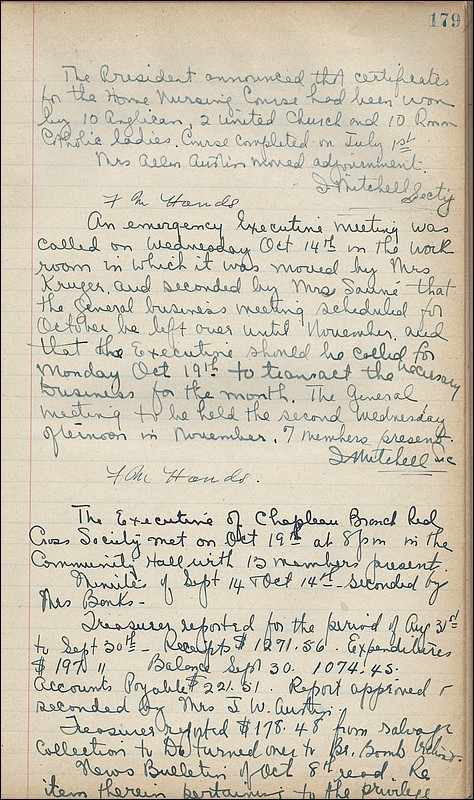 179
The President announced that certificates
for the Home Nursing Course had been won
by 10 Anglican, 2 United Church and 10 Roman
Catholic ladies. Course completed on July 1st.
Mrs Allen Austin moved adjournment.
I Mitchell Sect'y
F M Hands
An emergency Executive meeting was
called on Wednesday Oct 14th in the work
room in which it was moved by Mrs
Kruger, and seconded by Mrs Sauvé that
the General business meeting scheduled for
October be left over until November, and
that the Executive should be called for
Monday Oct 19th to transact the necessary
business for the month. The General
meeting to be held the second Wednesday
afternoon in November. 7 members present.
I Mitchell Sec
F M Hands.
The Executive of Chapleau Branch Red
Cross Society met on Oct 19th at 8 pm in the
Community Hall with 13 members present.
Minutes of Sept 14 & Oct 14th - seconded by
Mrs Banks -
Treasurer reported for the period of Aug 31st
to Sept 30th - Receipts $1271.56. Expenditures
$197.11 Balance Sept 30. 1074.45.
Accounts Payable $221.51. Report approved &
seconded by Mrs J. W. Austin.
Treasurer reported $178.48 from salvage
collection to be turned over to Br. Bomb Victims.
News Bulletin of Oct 8th read. Re
item therein pertaining to the privilege